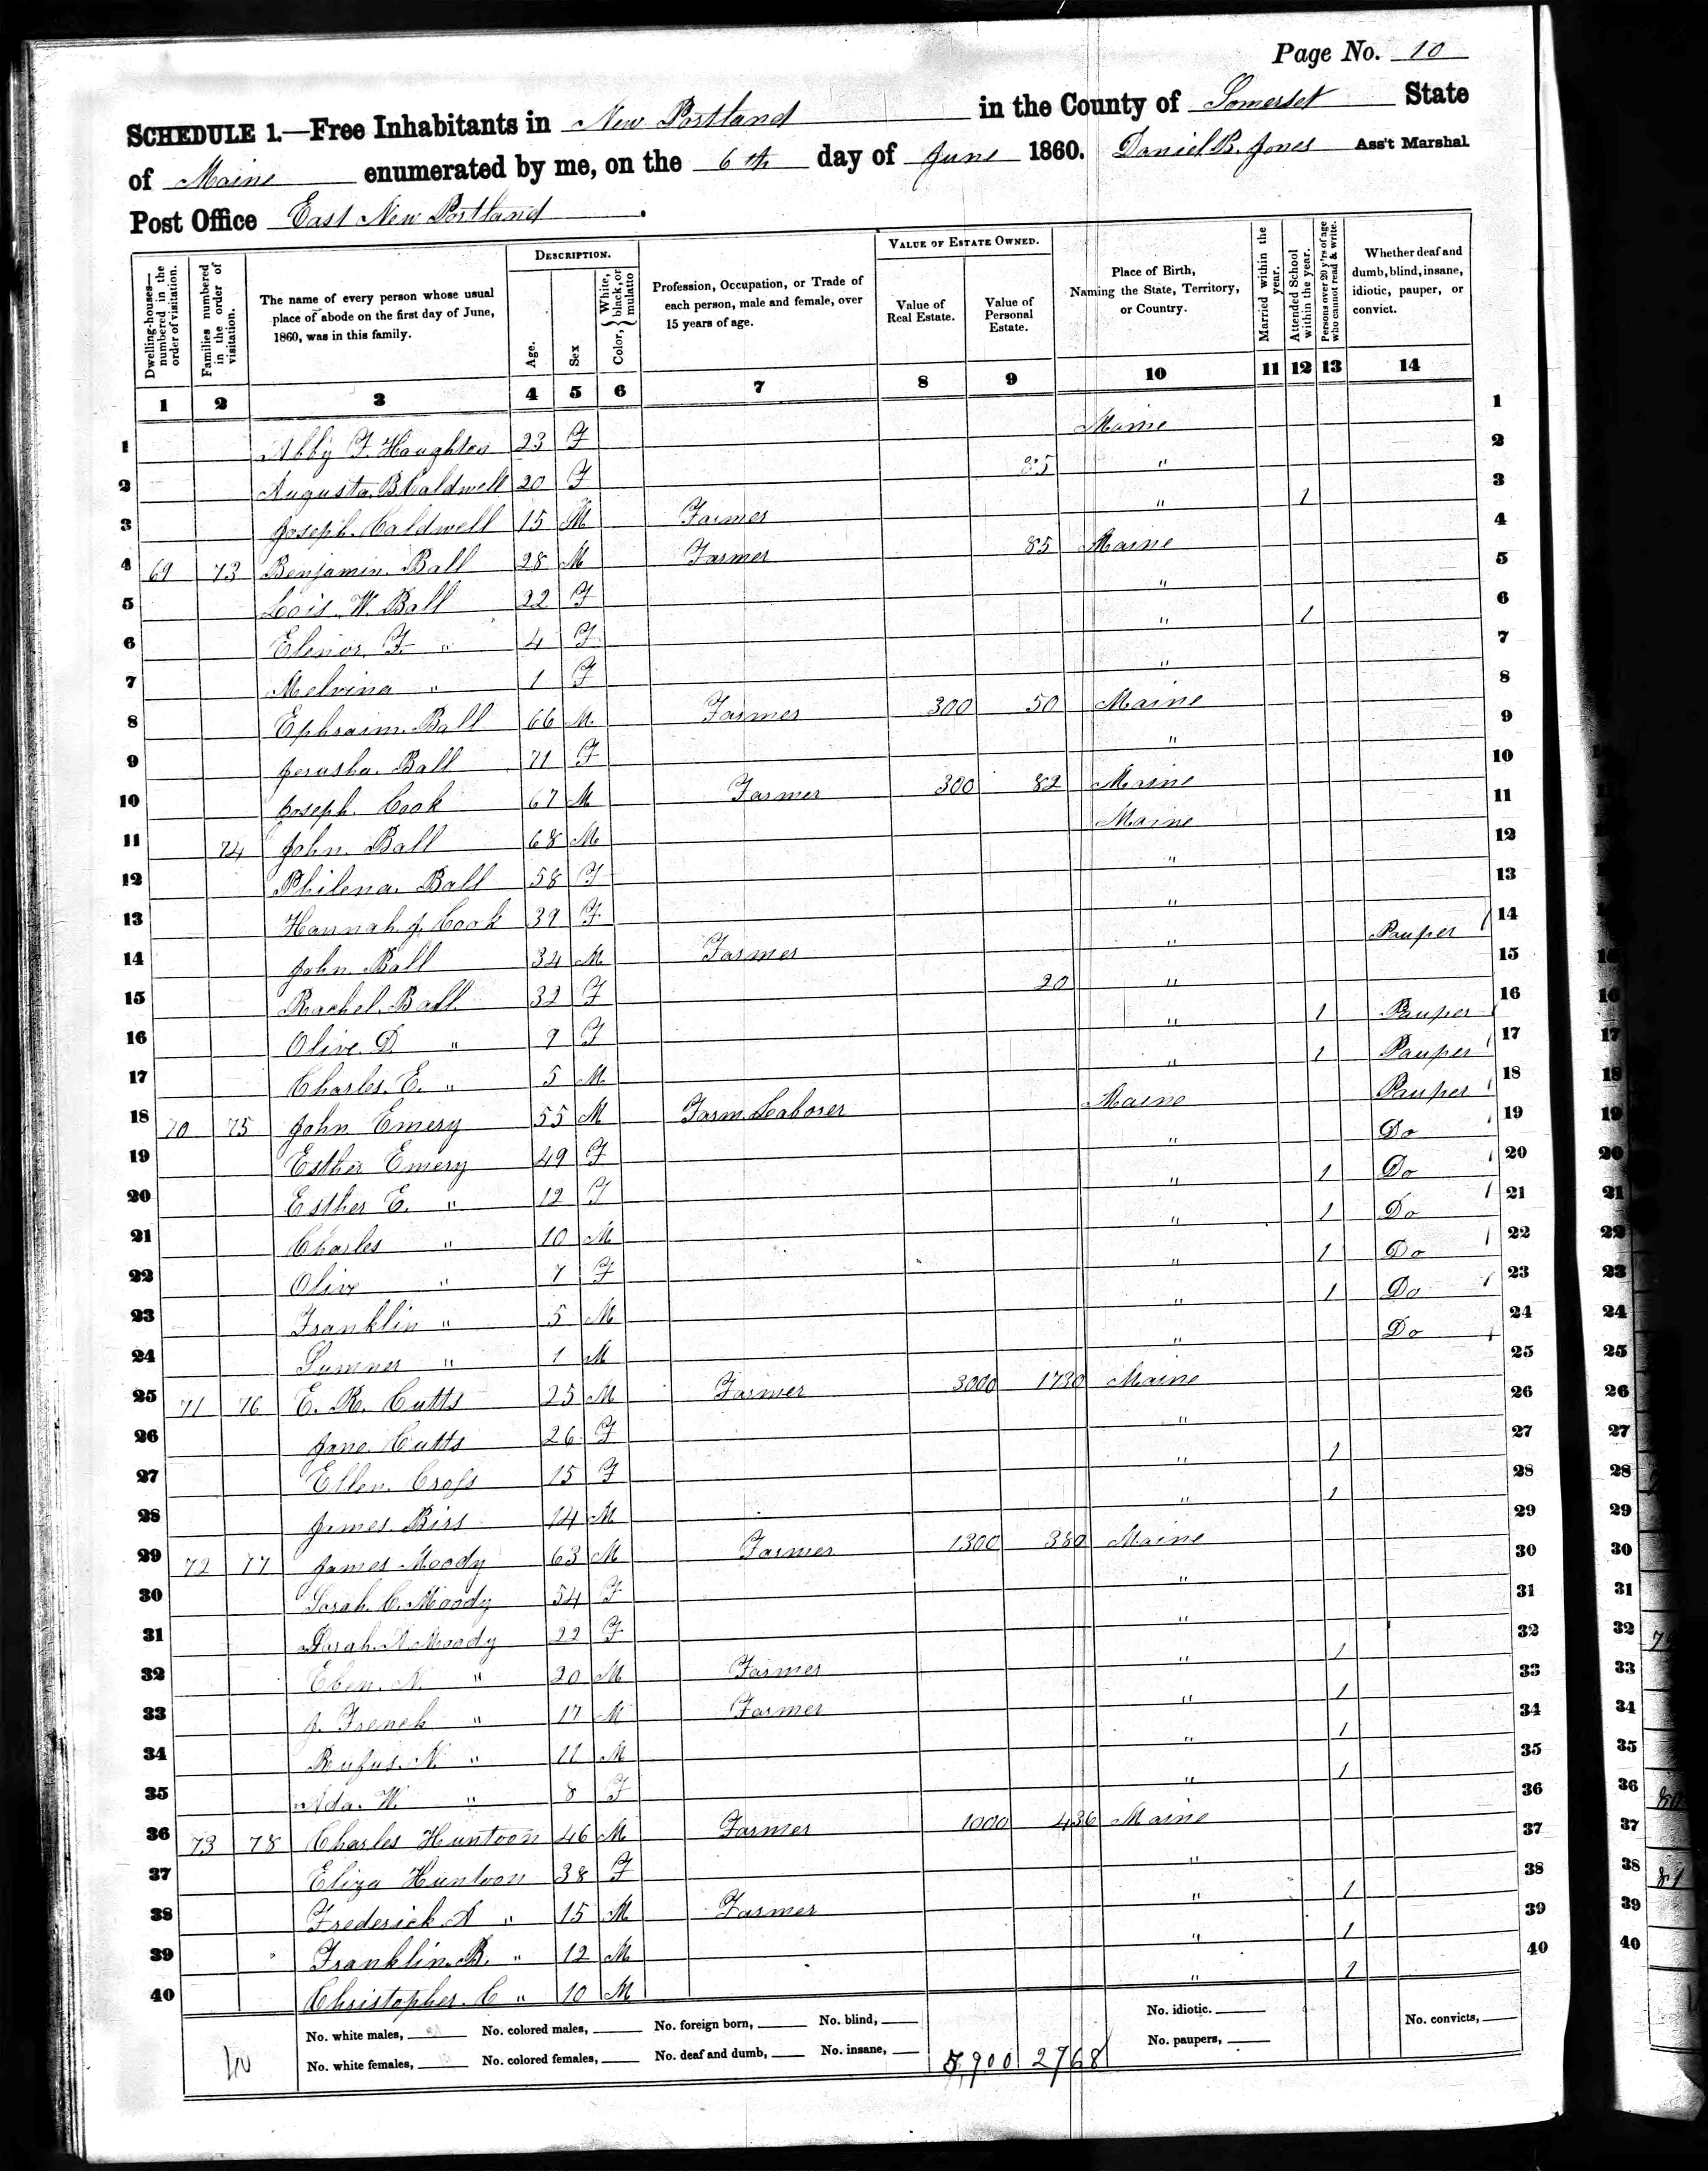 Page No. 10
SCHEDULE 1.—Free Inhabitants in New Portland in the County of Somerset State
of Maine enumerated by me, on the 6th day of June 1860. Daniel B. Jones Ass't Marshal
Post Office East New Portland .
Dwelling-houses—numbered in the order of visitation.
Families numbered in the order of visitation.
The name of every person whose usual place of abode on the first day of June, 1860, was in this family.
DESCRIPTION.
Age.
Sex
Color, } White, black, or mulatto
Profession, Occupation, or Trade of each person, male and female, over 15 years of age.
VALUE OF ESTATE OWNED.
Value of Real Estate.
Value of Personal Estate.
Place of Birth, Naming the State, Territory, or Country.
Married within the year.
Attended School within the year.
Persons over 20 y'rs of age who cannot read & write.
Whether deaf and dumb, blind, insane, idiotic, pauper, or convict.
1 2 3 4 5 6 7 8 9 10 11 12 13 14
1 Abby F. Houghton 23 F Maine 1
2 Augusta B Caldwell 20 F 85 " 2
3 Joseph Caldwell 15 M Farmer " 1 3
4 69 73 Benjamin Ball 28 M Farmer 85 Maine 4
5 Lois W. Ball 22 F " 5
6 Elinor F. " 4 F " 1 6
7 Melvina " 1 F " 7
8 Ephraim Ball 66 M Farmer 300 50 Maine 8
9 Jerusha Ball 71 F " 9
10 Joseph Cook 67 M Farmer 300 82 Maine 10
11 74 John Ball 68 M Maine 11
12 Philena Ball 58 F " 12
13 Hannah J. Cook 39 F " 13
14 John Ball 34 M Farmer " Pauper 14
15 Rachel Ball 32 F 20 " 15
16 Olive D " 9 F " 1 Pauper 16
17 Charles E. " 5 M " 1 Pauper 17
18 70 75 John Emery 55 M Farm Leaborer Maine Pauper 18
19 Esther Emery 49 F " Do 19
20 Esther E. " 12 F " 1 Do 20
21 Charles " 10 M " 1 Do 21
22 Olive " 7 F " 1 Do 22
23 Franklin " 5 M " 1 Do 23
24 Sumner " 1 M " Do 24
25 71 76 E. R. Cutts 25 M Farmer 3000 1730 Maine 25
26 Jane Cutts 26 F " 26
27 Ellen Cross 15 F " 1 27
28 James Birs 14 M " 1 28
29 72 77 James Moody 63 M Farmer 1300 380 Maine 29
30 Sarah C. Moody 54 F " 30
31 Sarah A Moody 22 F " 31
32 Eben N. " 20 M Farmer " 1 32
33 J. French " 17 M Farmer " 1 33
34 Rufus N. " 11 M " 1 34
35 Ada W. " 8 F " 1 35
36 73 78 Charles Huntoon 46 M Farmer 1000 436 Maine 36
37 Eliza Huntoon 38 F " 37
38 Frederick A " 15 M Farmer " 1 38
39 Franklin B. " 12 M " 1 39
40 Christopher C " 10 M " 1 40
No. white males, No. colored males, No. foreign born, No. blind, No. idiotic. No. convicts,
No. white females, No. colored females, No. deaf and dumb, No. insane, 5900 2768 No. paupers,